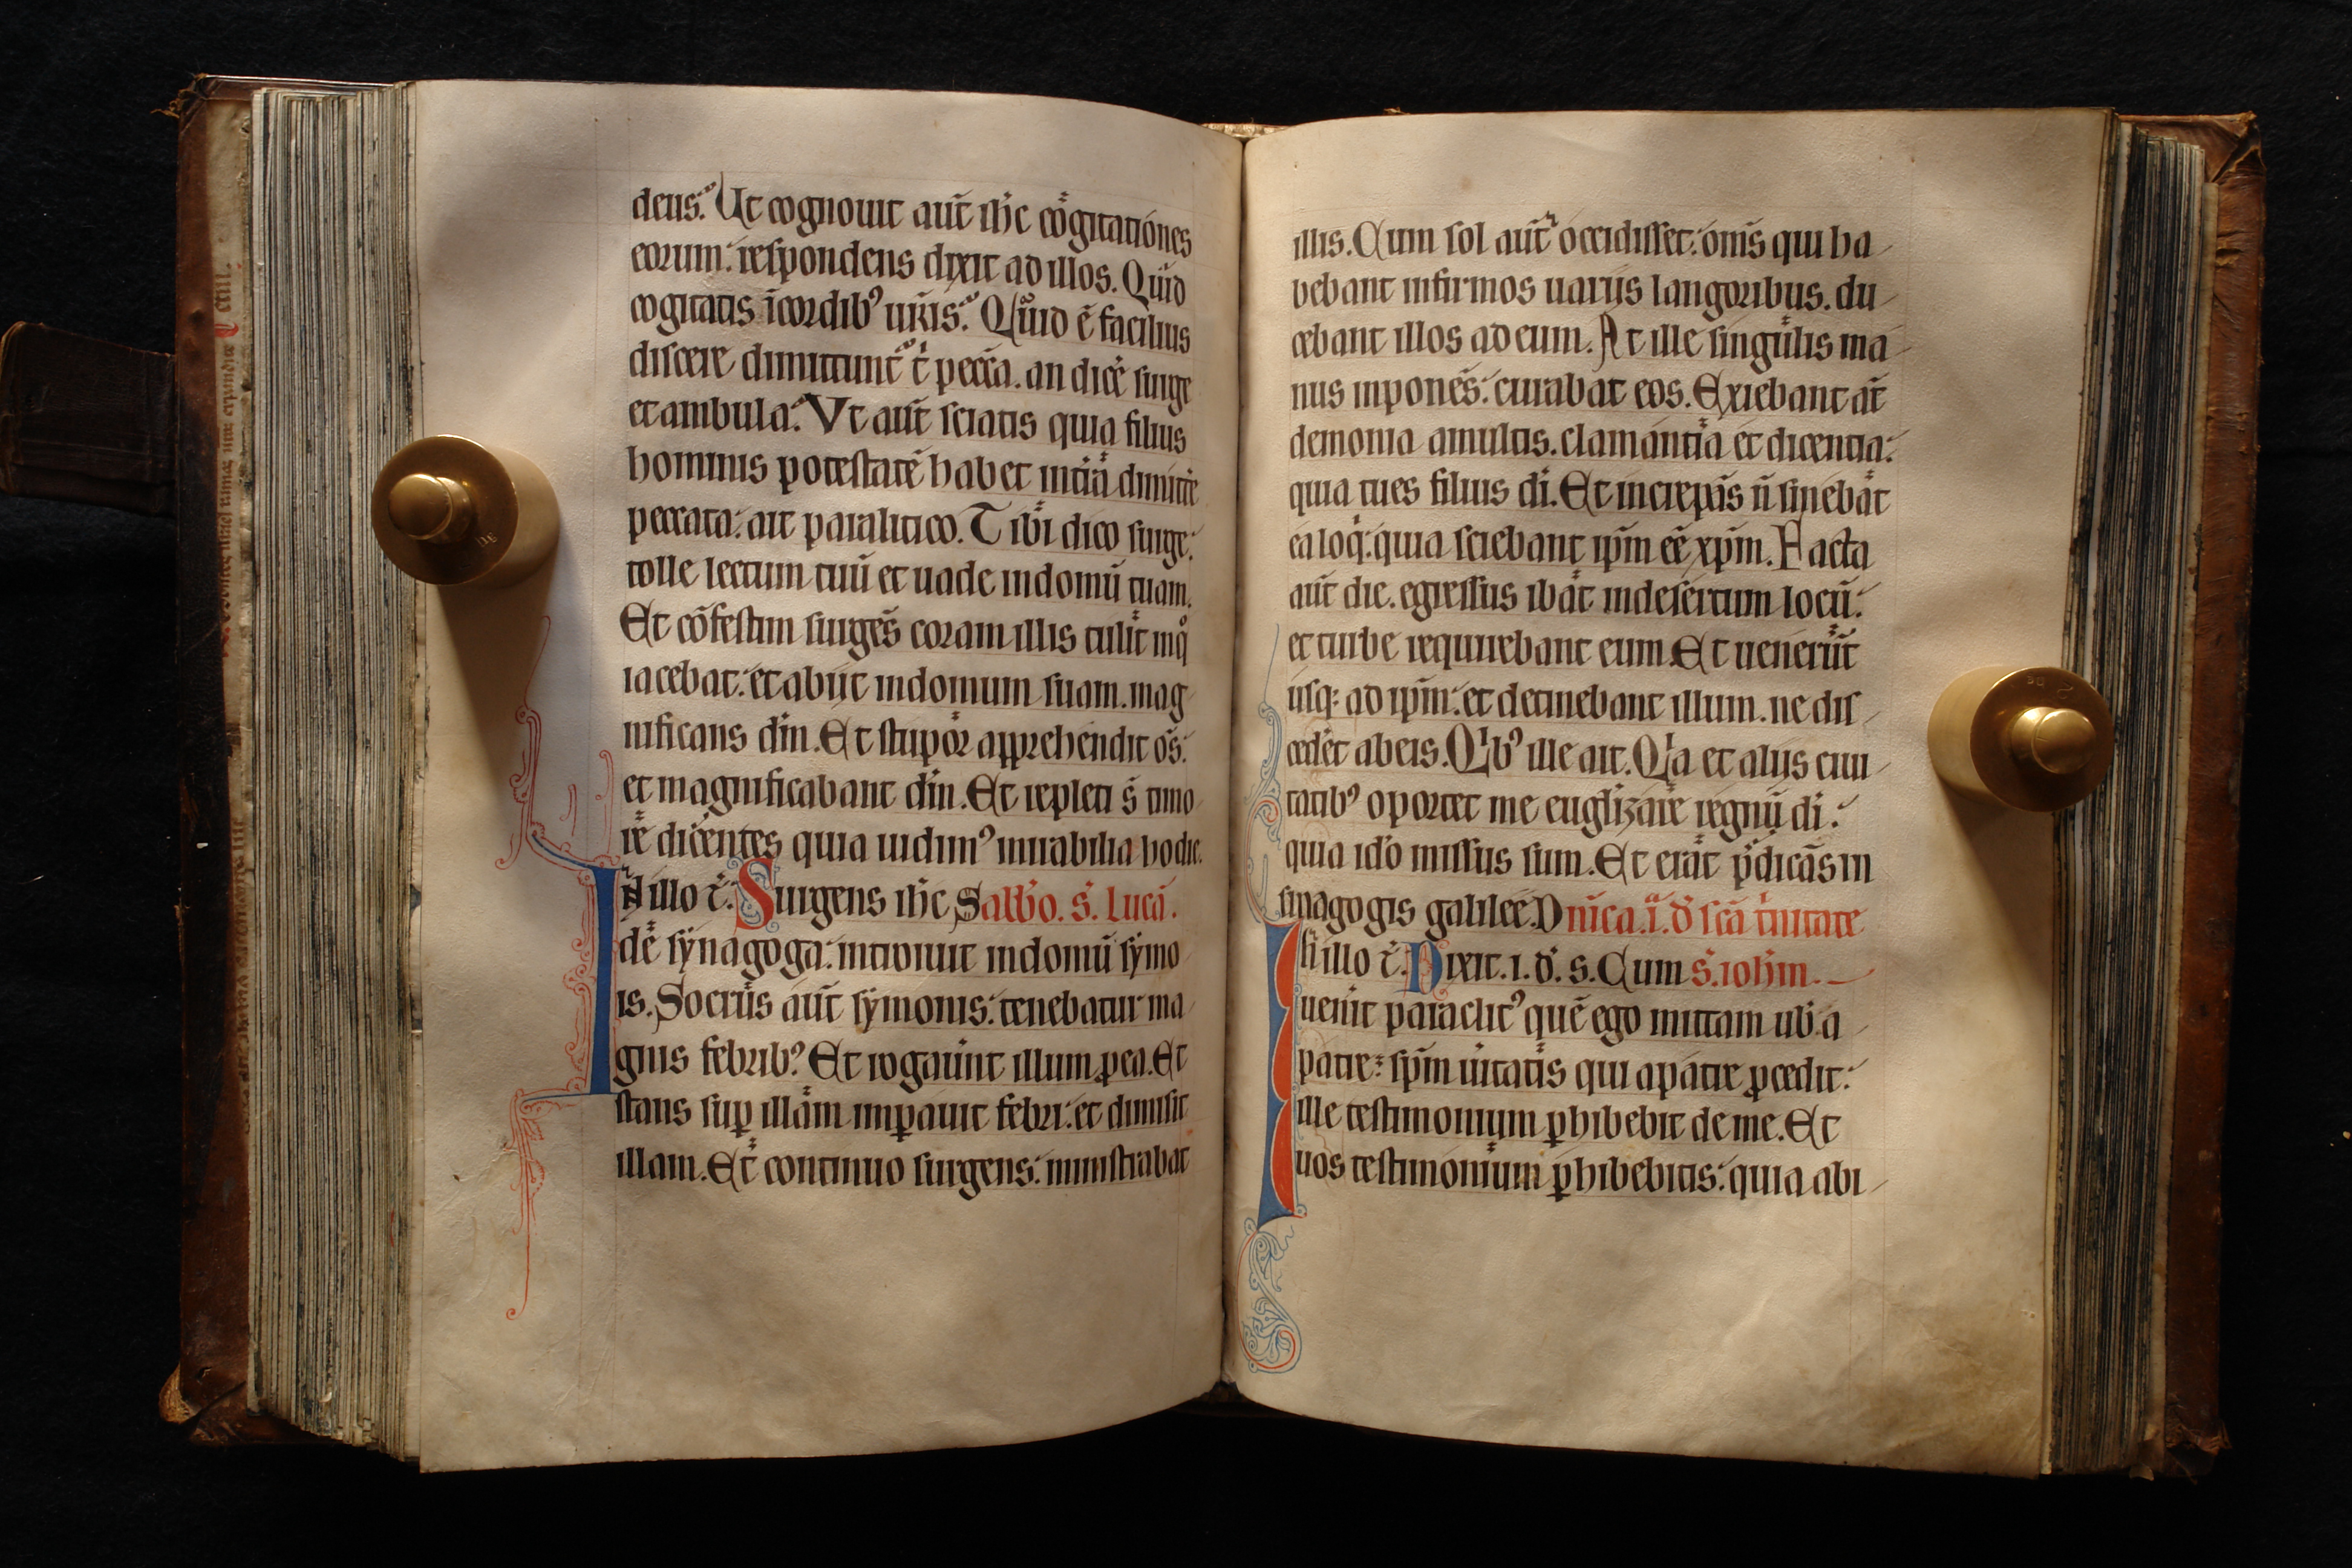 deus. Ut cognouit aūt ih̄c cogitationes
eorum: respondens dixit ad illos. Quid
cogitatis ī cordibꝰ ur̄is. Quid ē facilius
discere dimittunt̄ t̄ pecc̄a. an dic̄e surge
et ambula. Vt aūt sciatis quia filius
hominis potestatē habet in t̄ra dimitt̄e
peccata: ait paralitico. Tibi dico surge:
tolle lectum tuū et uade in domū tuam.
Et cōfestim surgēs coram illis tulit in q̊
iacebat: et abiit in domum suam. mag
nificans dm̄. Et stupor apprehendit om̄s:
et magnificabant dm̄. Et repleti s̄ timo
re dicentes quia uidimꝰ mirabilia hodie.
In illo t̄. Surgens ih̄c Sabb̄o. s̄. Lucā.
de synagoga: introiuit in domū symo
is. Socrus aūt symonis: tenebatur ma
gnis febribꝰ. Et rogauūt illum ꝓ ea. Et
stans sup̱ illam imp̱auit febri: et dimisit
illam. Et continuo surgens: ministrabat
illis. Cum sol aūt occidisset: om̄s qui ha
bebant infirmos uariis langoribus. du
cebant illos ad eum. At ille singulis ma
nus inponēs: curabat eos. Exiebant aūt
demonia a multis. clamantia et dicentia:
quia tu es filius dī. Et increpās n̄ sinebat
ea loqͥ: quia sciebant ip̄m eē xp̄m. Facta
aūt die. egressus ibat in desertum locū:
et turbe requirebant eum. Et uenerūt
usq; ad ip̄m: et detinebant illum. ne dis
cedēt ab eis. Qͥbꝰ ille ait. Qͥa et aliis ciui
tatibꝰ oportet me euglizare regnū dī:
quia id̄o missus sum. Et erat p̄dicās in
sinagogis galilee. Dnīca. ī. d̄ sc̄a t͛nitate
In illo t̄. Dixit. i. d̄. s. Cum s̄. ioh̄m.
uenit paraclitꝰ quē ego mittam uob̄ a
patre: sp̄m uitatis qui a patre ꝓcedit:
ille testimonium p̱hibebit de me. Et
uos testimonium p̱hibebitis: quia ab i